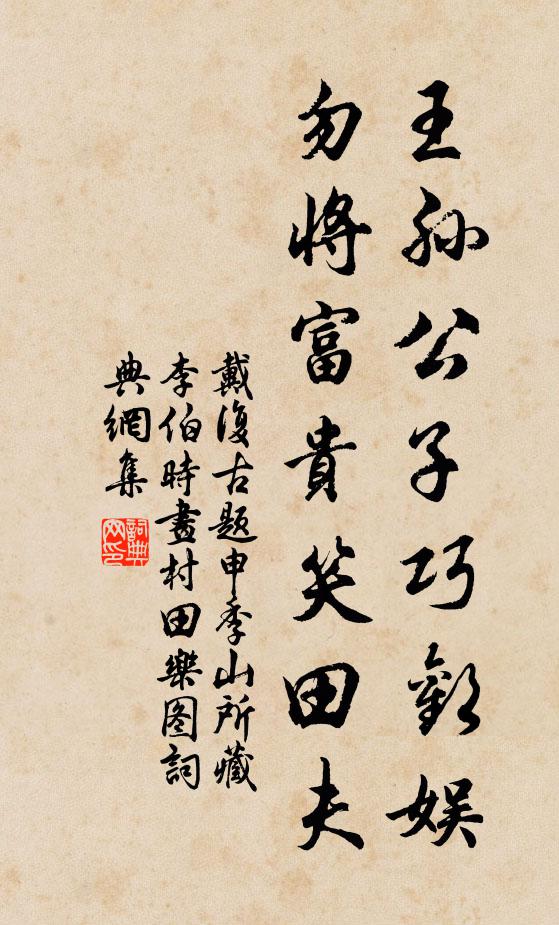 王孫公子巧歡娛
勿將富貴笑田夫
戴復古題申季山所藏
李伯時畫村田樂图詞
典網集
詞典网印